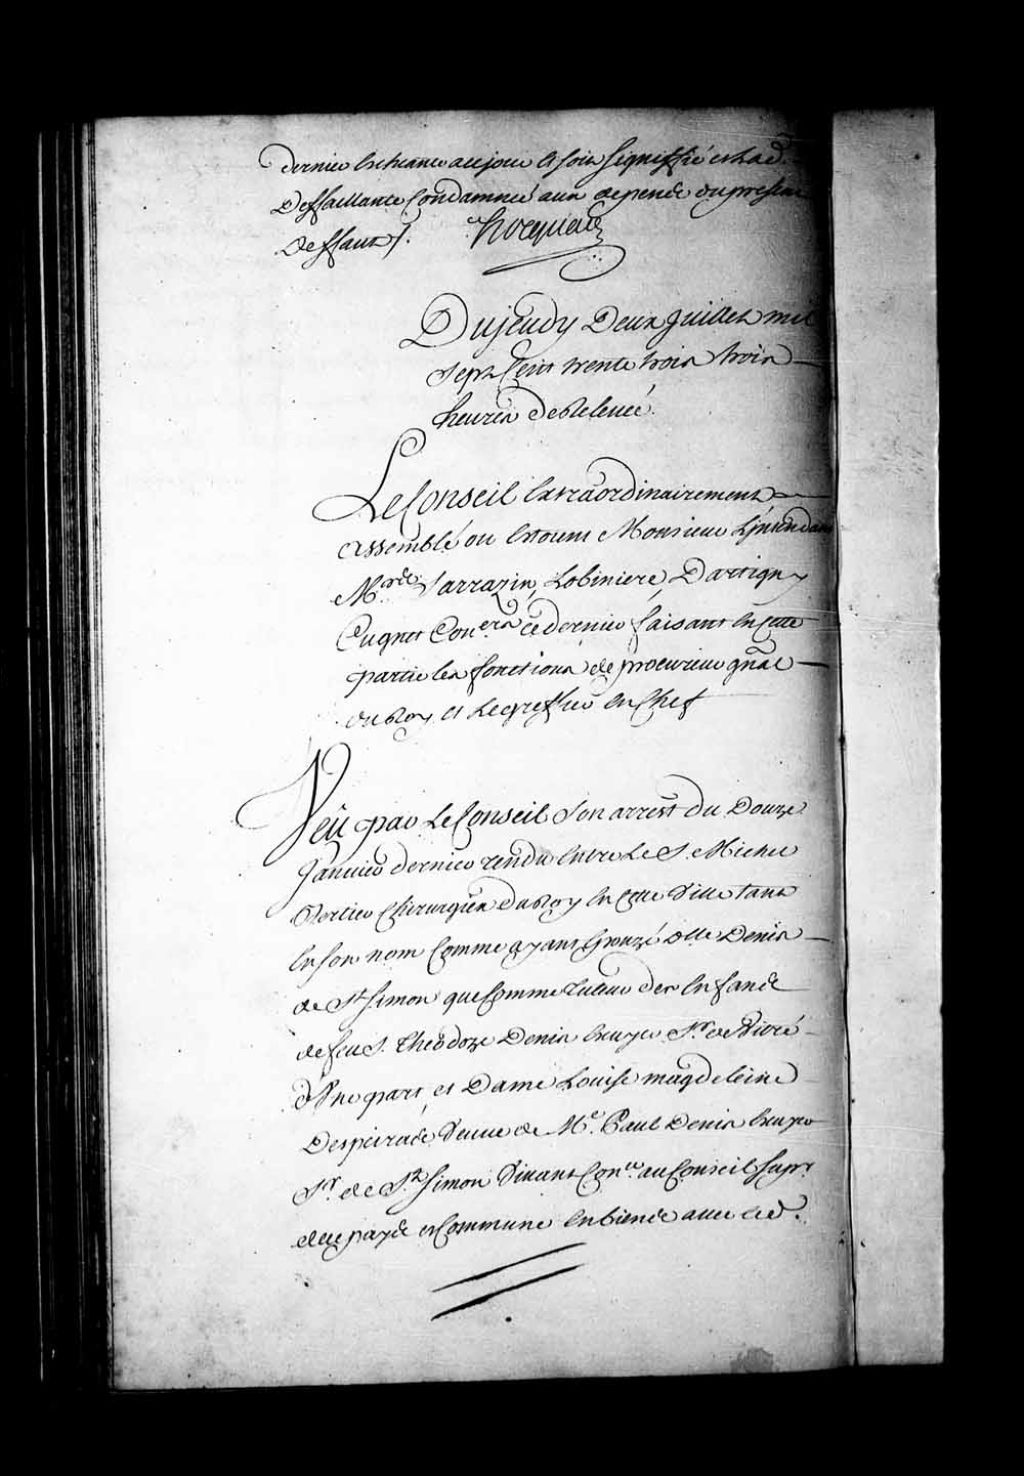 dernier Echeance a ce jour Et soit signiffié et lad.
Deffaillante Condamnée aux depends du present
deffaut /. hocquart
Du jeudy Deux juillet mil
sept Cent trente trois trois
heures de Relevée
Le Conseil Extraordinairement
assemblé ou Etoient Monsieur L'jntendant
Mrs de Sarrazin, Lobiniere, Dartigny
Cugnet Coners ce dernier faisant En cette
partie les fonctions de procureur gñal
du Roy et Le greffier En Chef
Veü par Le Conseil Son arrest du Douze
Janvier dernier rendu Entre Le S. Michel
Bertier Chirurgien du Roy En cette Ville tant
En son nom Comme ayant Epouzé dlle Denis
de St Simon que Comme tuteur des Enfans de
defeu S. Theodoze Denis Ecuyer Sr de Vitré
d'Une part, et Dame Louise magdeleine
Despeiras de Veuve de Me. Paul Denis Ecuyer
Sr. de St Simon Vivant Coner. au Conseil Supr
de ce pays et Commune En biens de avec led.